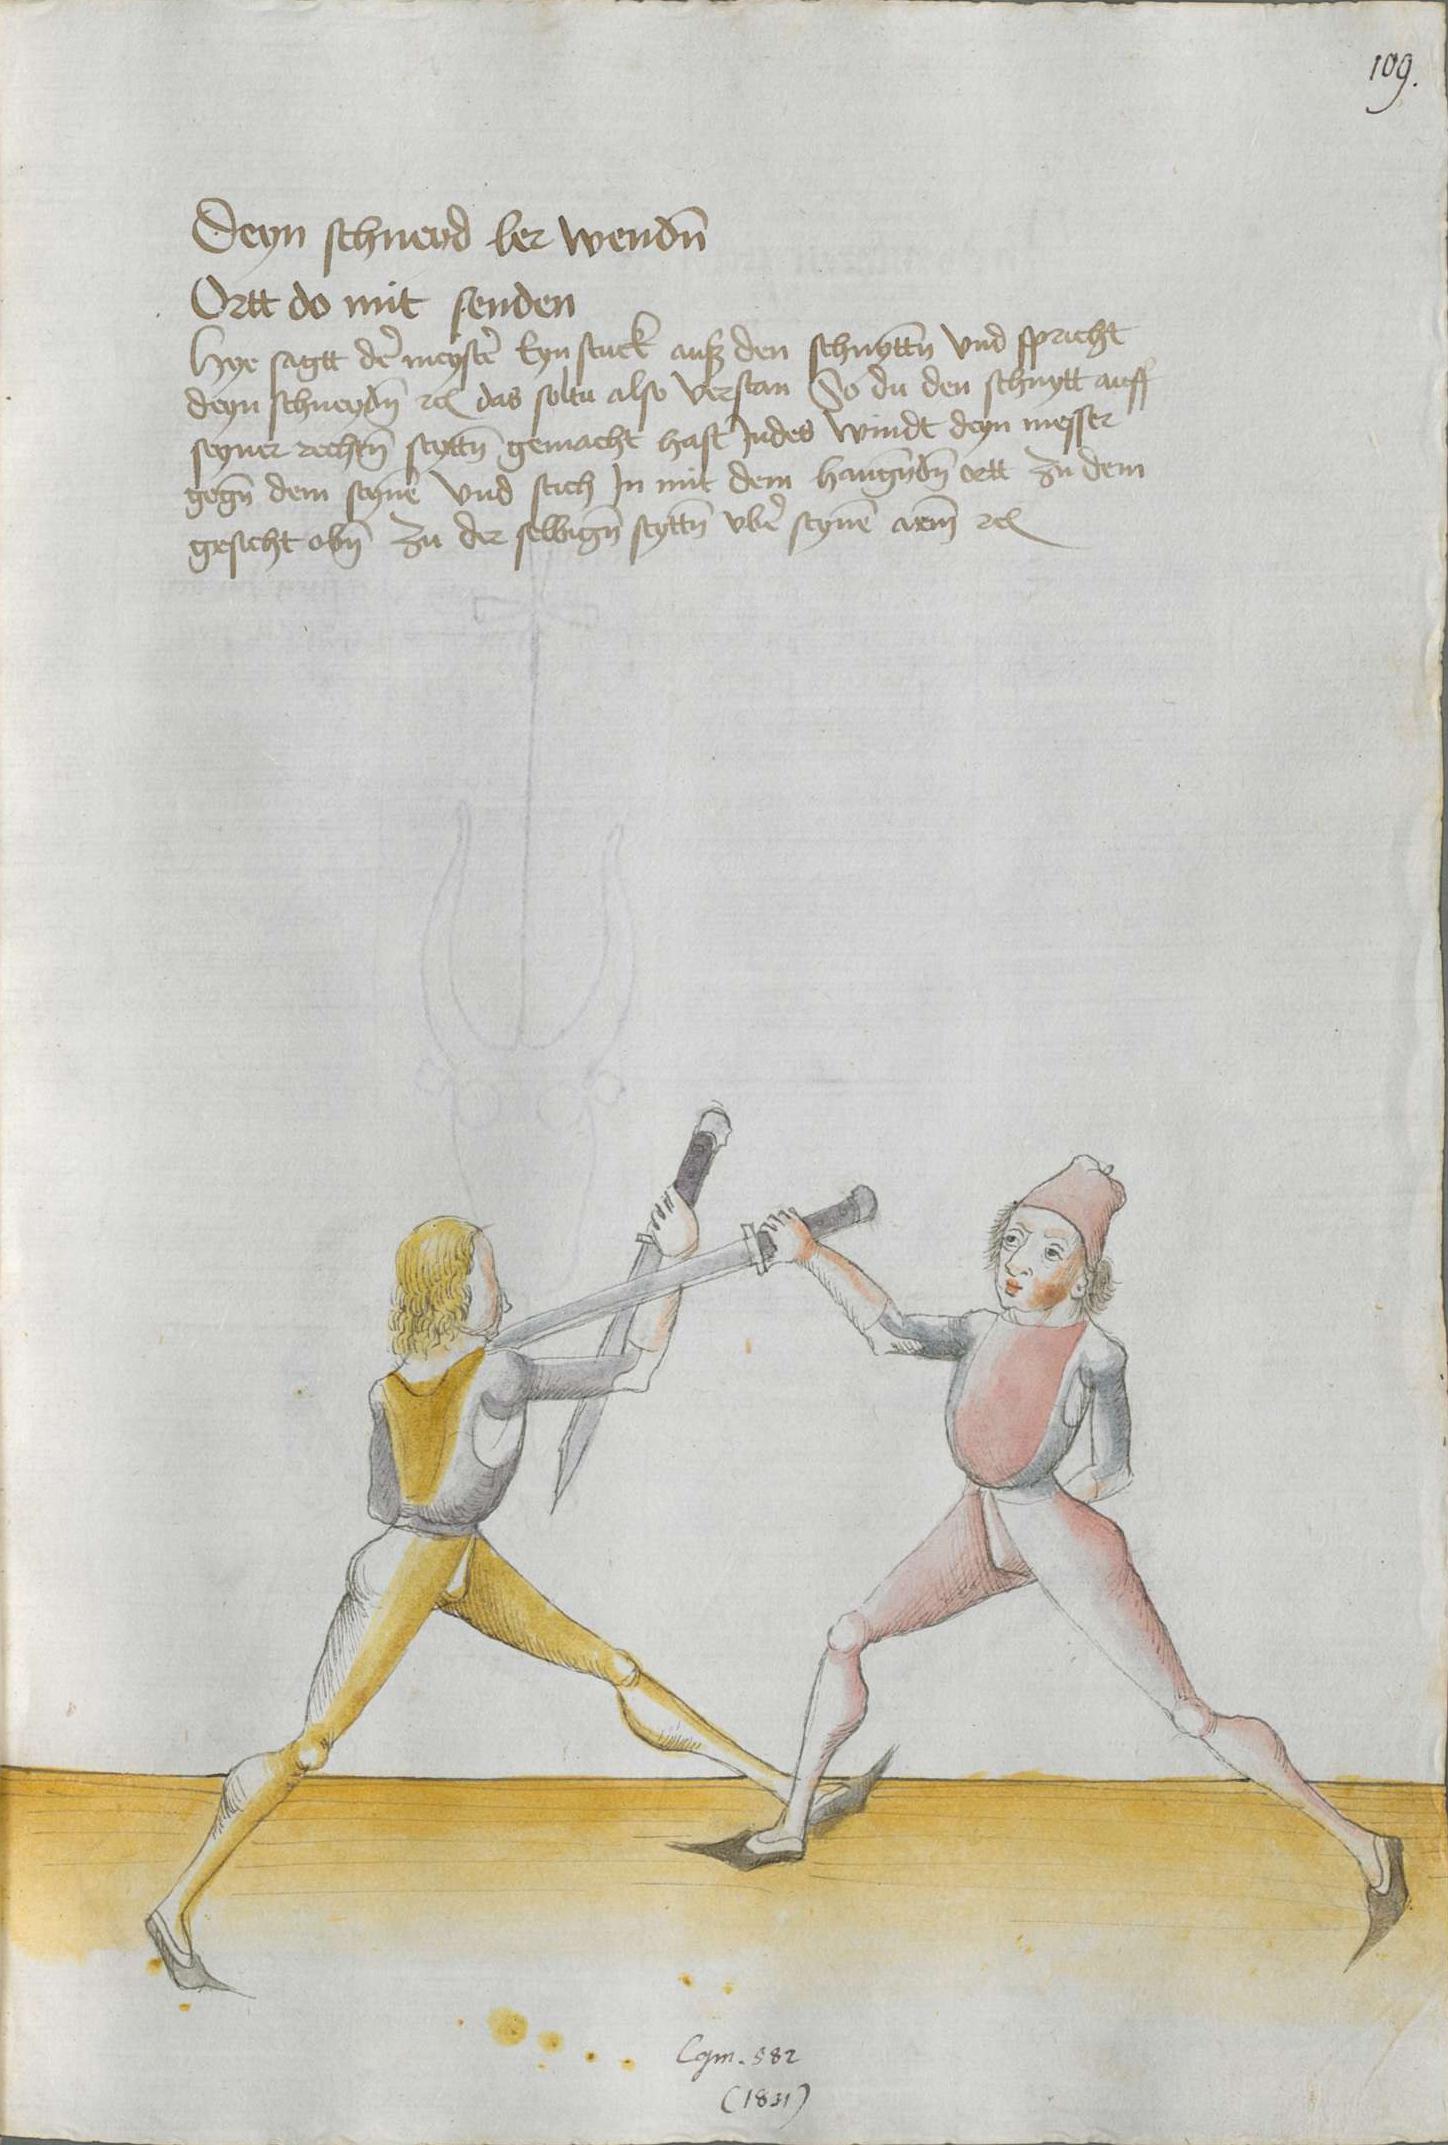 109.
Deyn schneyd ler wendn̄
Ortt do mit senden
Hye sagtt der̄ meyster̄ Eyn stuck auß den schnyttn̄ vnd spricht
deyn schneydn̄ rc̄ das soltu also verstan So du den schnytt auff
seyner rechtn̄ seyttn̄ gemacht hast Indes windt deyn messer
gegn̄ dem seynē vnd stich In mit dem hangn̄dn̄ ortt zu dem
gesicht obn̄ zu der selbign̄ seyttn̄ vber̄ seynē arm̄ rc̄
Cgm. 582
(1831)